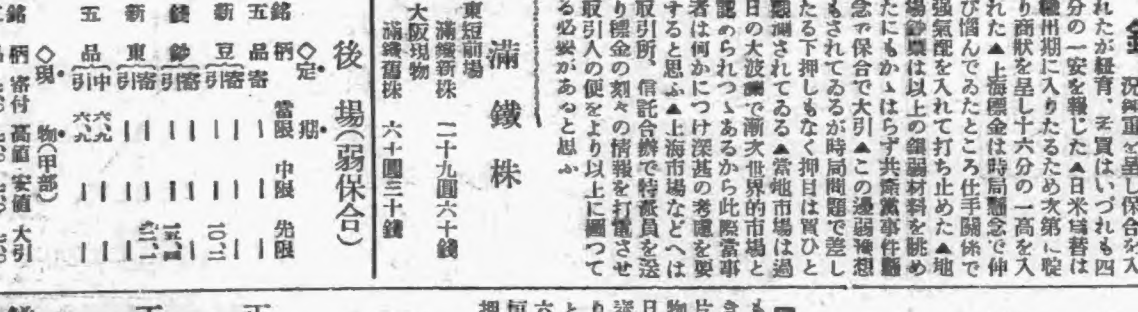 況鈍重を呈し保合を入
れたが紐育、
買はいづれも四
分の一安を報じた▲日米爲替は
期に入りたるため次第に
り商狀を呈し十六分の一高を入
れた▲上海標金は時局懸念で伸
び惱んでゐたところ仕手關係で
强氣配を入れて打ち止めた▲地
場鈔票は以上の銀弱材料を眺め
たにもかゝはらず共產黨事件懸
念で保合で大引▲この邊弱豫想
もされてゐるが時局問題で差し
たる下押しもなく押目は買ひと
觀測されてゐる▲當地市場は過
日の大波瀾で漸次世界的市場と
認められつゝあるから此際當事
者は何かにつけ深甚の考慮を要
すると思ふ▲上海市場などへは
取引所、信託合辦で特派員を送
り標金の刻々の情報を打電させ
取引人の便をより以上に圖つて
る必要があると思ふ
滿鐵株
東短前場
滿鐵新株 二十九圓六十錢
大阪現物
滿鐵舊株 六十圓三十錢
後場(弱保合)
◇定期
銘柄 當限 中限 先限
五品寄 — — —
新豆 寄 — — —
引 — — 10.二
錢鈔 寄 — —
引 — —
新東 寄 — —
引 — —
五品 中 六.九 — —
引 六.九 — —
◇現物(甲部)
銘柄 寄付 高値 安値 大引